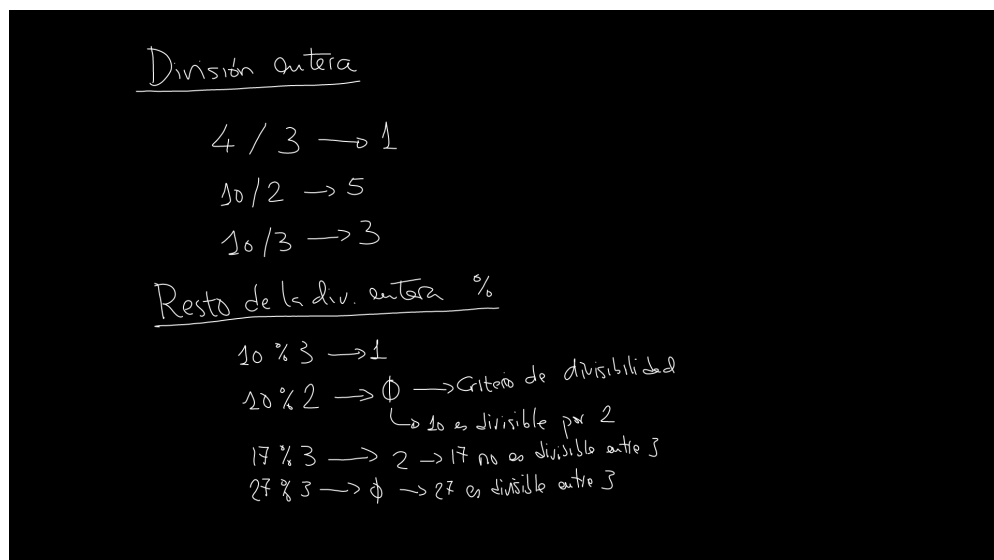 División entera
4 / 3 → 1
10/2 → 5
10/3 → 3
Resto de la div. entera %
10 % 3 → 1
10 % 2 → ϕ → Criterio de divisibilidad
↳ 10 es divisible por 2
17 % 3 → 2 → 17 no es divisible entre 3
27 % 3 → ϕ → 27 es divisible entre 3